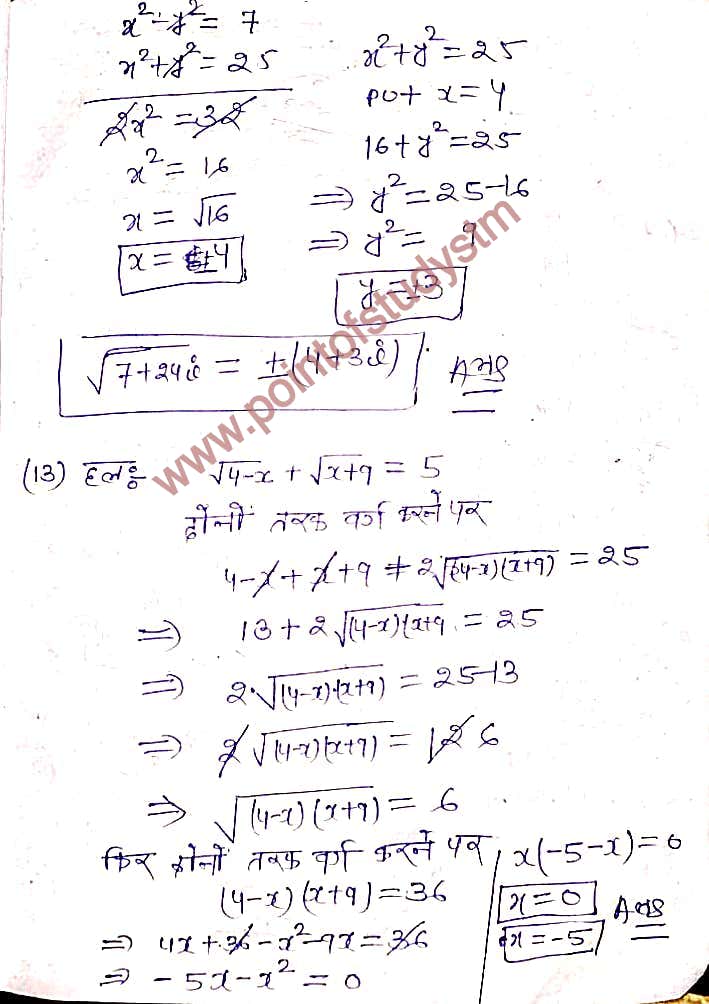 x² - y² = 7
x² + y² = 25
2x² = 32
x² = 16
x = √16
x = ±4
x² + y² = 25
put x = 4
16 + y² = 25
⇒ y² = 25-16
⇒ y² = 9
y = ±3
√7+24i = ±(4+3i) Ans
www.pointofstudystm
(13) हलः √4-x + √x+9 = 5
दोनों तरफ वर्ग करने पर
4-x + x+9 + 2√(4-x)(x+9) = 25
⇒ 13 + 2√(4-x)(x+9 = 25
⇒ 2·√(4-x)·(x+9) = 25-13
⇒ 2√(4-x)(x+9) = 12 6
⇒ √(4-x)(x+9) = 6
फिर दोनों तरफ वर्ग करने पर
(4-x)(x+9) = 36
⇒ 4x + 36 - x² - 9x = 36
⇒ -5x - x² = 0
x(-5-x) = 0
x = 0 Ans
x = -5